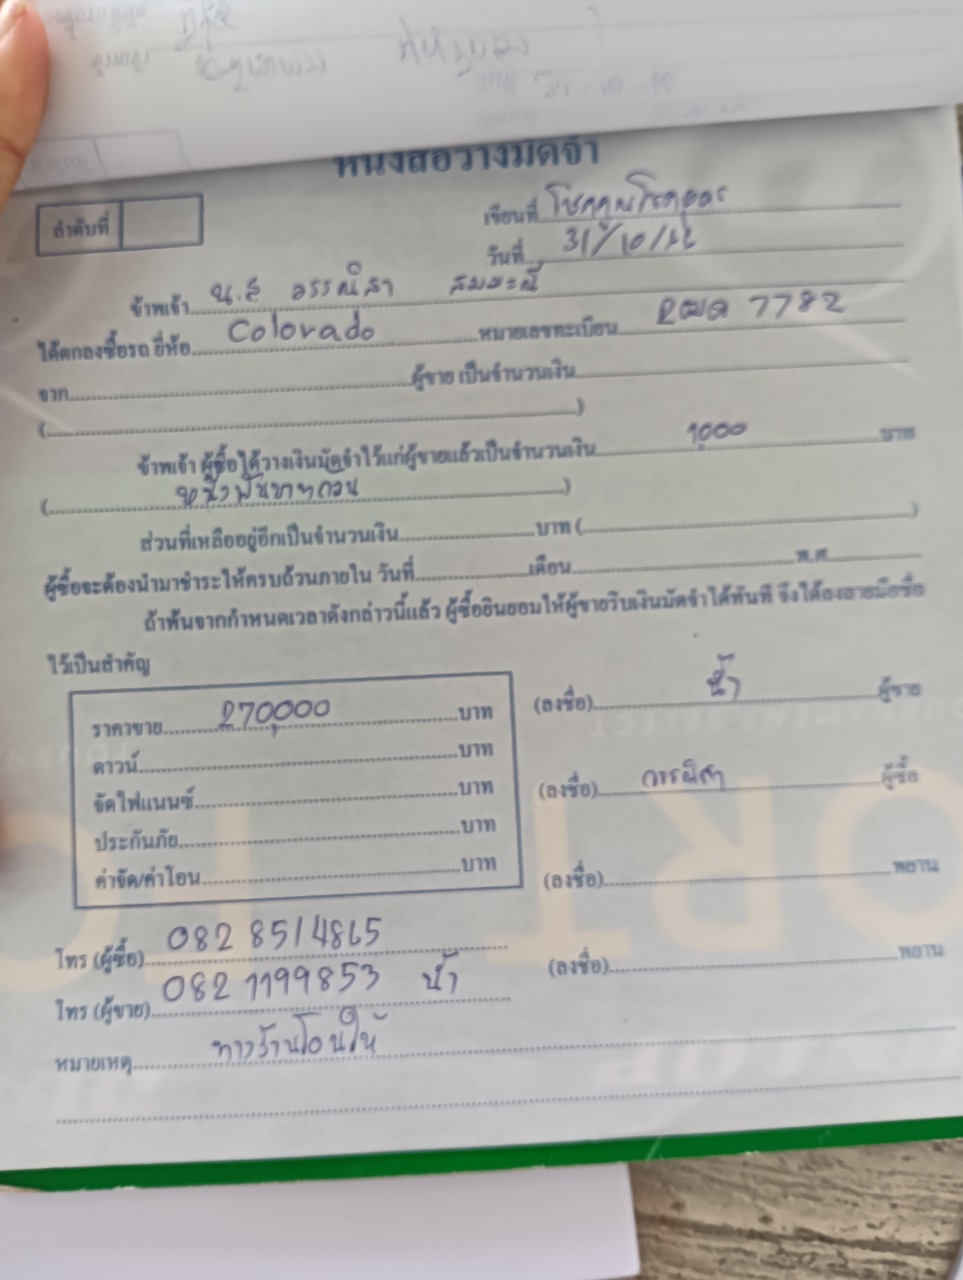 หนังสือวางมัดจำ
ลำดับที่
เขียนที่
วันที่ 31/10/66
ข้าพเจ้า น.ส อรรณิสา สมมะณี
ได้ตกลงซื้อรถ ยี่ห้อ Colorado หมายเลขทะเบียน 2ฒด 7782
จาก ผู้ขาย เป็นจำนวนเงิน
( )
ข้าพเจ้า ผู้ซื้อได้วางเงินมัดจำไว้แก่ผู้ขายแล้วเป็นจำนวนเงิน 1,000 บาท
( หนึ่งพันบาทถ้วน )
ส่วนที่เหลืออยู่อีกเป็นจำนวนเงิน บาท ( )
ผู้ซื้อจะต้องนำมาชำระให้ครบถ้วนภายใน วันที่ เดือน พ.ศ.
ถ้าพ้นจากกำหนดเวลาดังกล่าวนี้แล้ว ผู้ซื้อยินยอมให้ผู้ขายริบเงินมัดจำได้ทันที จึงได้ลงลายมือชื่อ
ไว้เป็นสำคัญ
ราคาขาย 270,000 บาท
ดาวน์ บาท
จัดไฟแนนซ์ บาท
ประกันภัย บาท
ค่าจัด/ค่าโอน บาท
(ลงชื่อ) น้ำ ผู้ขาย
(ลงชื่อ) อรรณิสา ผู้ซื้อ
(ลงชื่อ) พยาน
(ลงชื่อ) พยาน
โทร (ผู้ซื้อ) 082 8514865
โทร (ผู้ขาย) 082 1199853 น้ำ
หมายเหตุ ทางร้านโอนให้